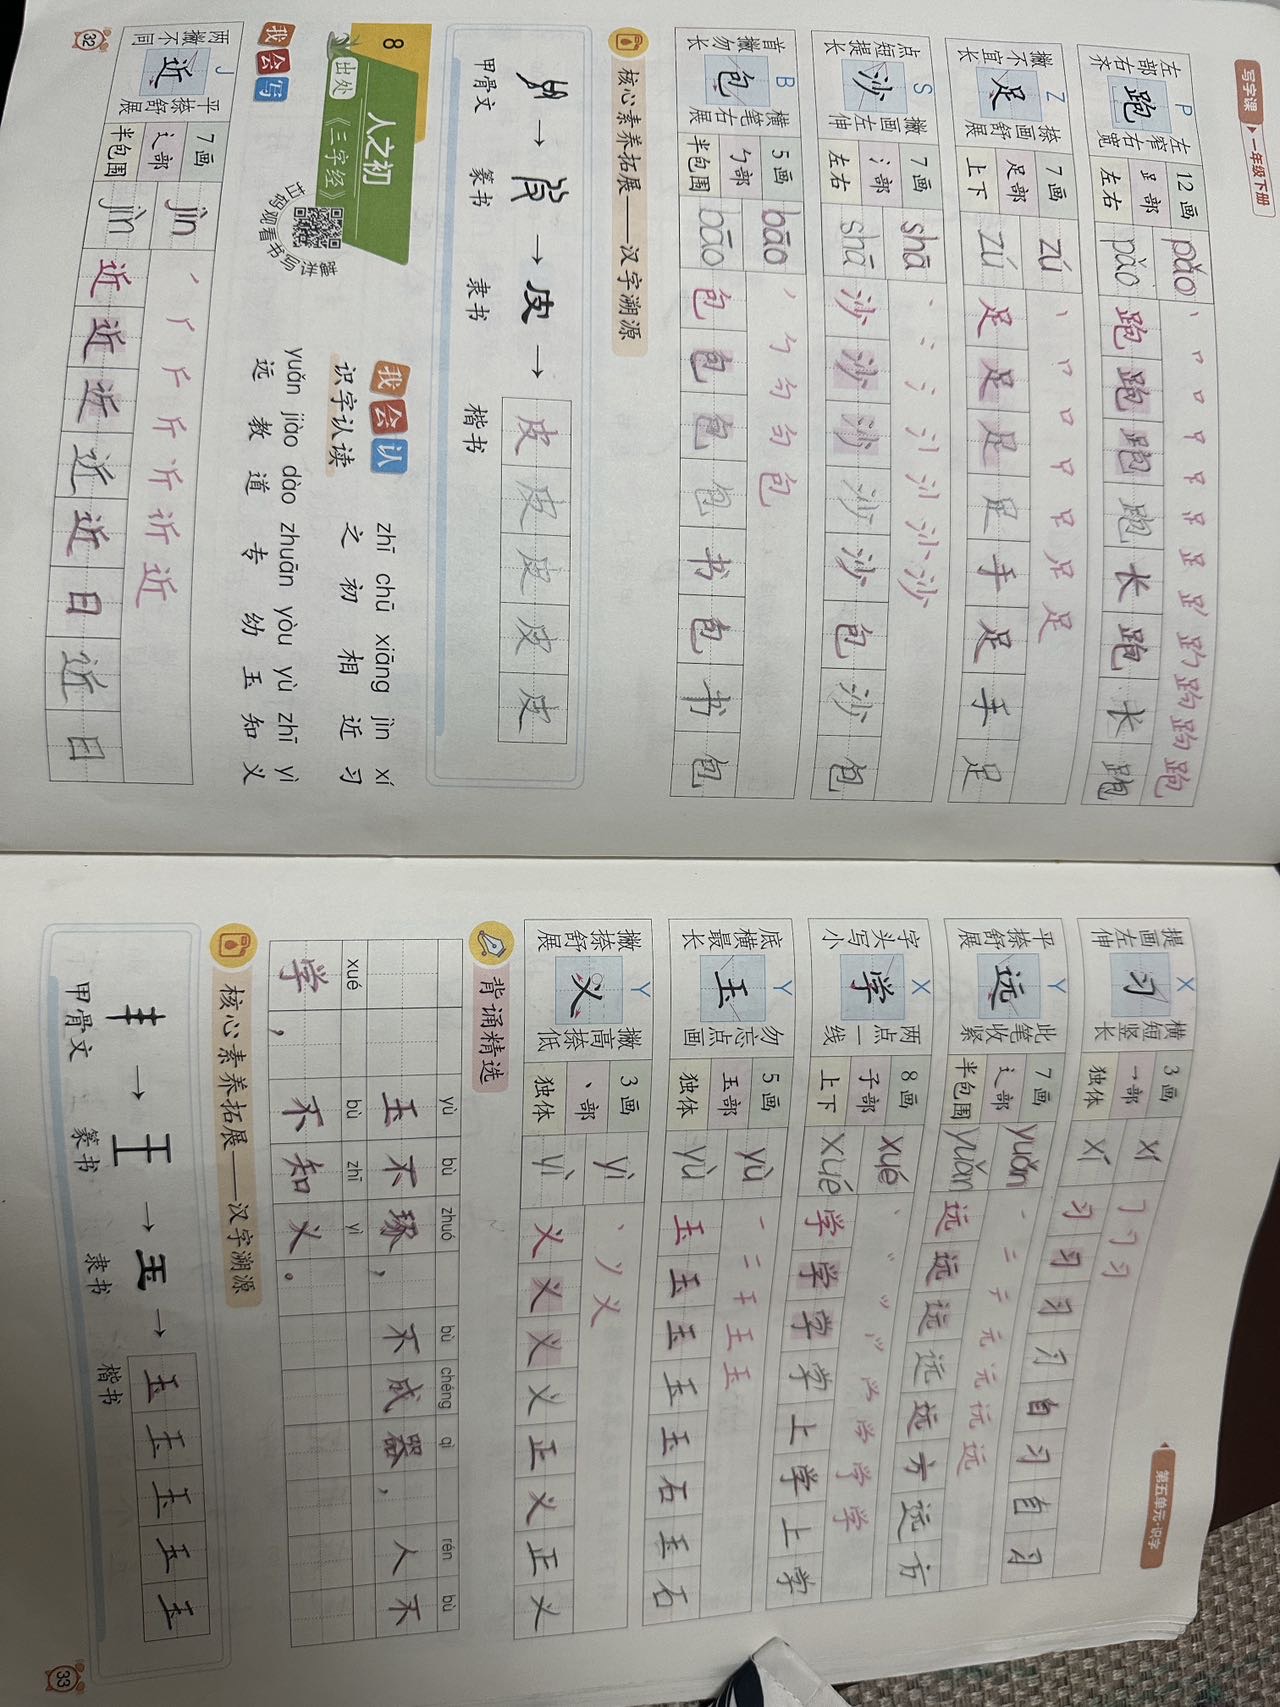 写字课 一年级下册
P
左部右齐 跑 左窄右宽
12画 足部 左右
pǎo
pǎo 跑 跑 跑 跑 长 跑 长 跑
Z
撇不宜长 足 捺画舒展
7画 足部 上下
zú 丨 口 口 足
zú 足 足 足 足 手 足 手 足
S
点短提长 沙 撇画左伸
7画 氵部 左右
shā 丶 冫 氵 沙
shā 沙 沙 沙 沙 沙 包 沙 包
B
首撇勿长 包 横笔右展
5画 勹部 半包围
bāo 丿 勹 勺 句 包
bāo 包 包 包 包 书 包 书 包
核心素养拓展——汉字溯源
→ → 皮 → 皮 皮 皮 皮 皮
甲骨文 篆书 隶书 楷书
8 人之初
出处 《三字经》
扫码观看书写讲解
我会认
识字认读
zhī chū xiāng jìn xí
之 初 相 近 习
yuǎn jiào dào zhuān yòu yù zhī yì
远 教 道 专 幼 玉 知 义
我会写
J
两撇不同 近 平捺舒展
7画 辶部 半包围
jìn 丿 厂 斤 斤 近
jìn 近 近 近 近 近 日 近 日
32
第五单元·识字
X
提画左伸 习 横短竖长
3画 乛部 独体
xí 𠃌 习 习
xí 习 习 习 习 自 习 自 习
Y
平捺舒展 远 此笔收紧
7画 辶部 半包围
yuǎn 一 二 元 元 远
yuǎn 远 远 远 远 远 方 远 方
X
字头写小 学 两点一线
8画 子部 上下
xué 学 学
xué 学 学 学 学 上 学 上 学
Y
底横最长 玉 勿忘点画
5画 玉部 独体
yù 一 二 干 王 玉
yù 玉 玉 玉 玉 玉 石 玉 石
Y
撇捺舒展 义 撇高捺低
3画 丶部 独体
yì 丶 丷 义
yì 义 义 义 义 正 义 正 义
背诵精选
yù bù zhuó bù chéng qì rén bù
玉 不 琢 ， 不 成 器 ， 人 不
xué bù zhī yì
学 ， 不 知 义 。
核心素养拓展——汉字溯源
→ 王 → 玉 → 玉 玉 玉 玉 玉
甲骨文 篆书 隶书 楷书
33